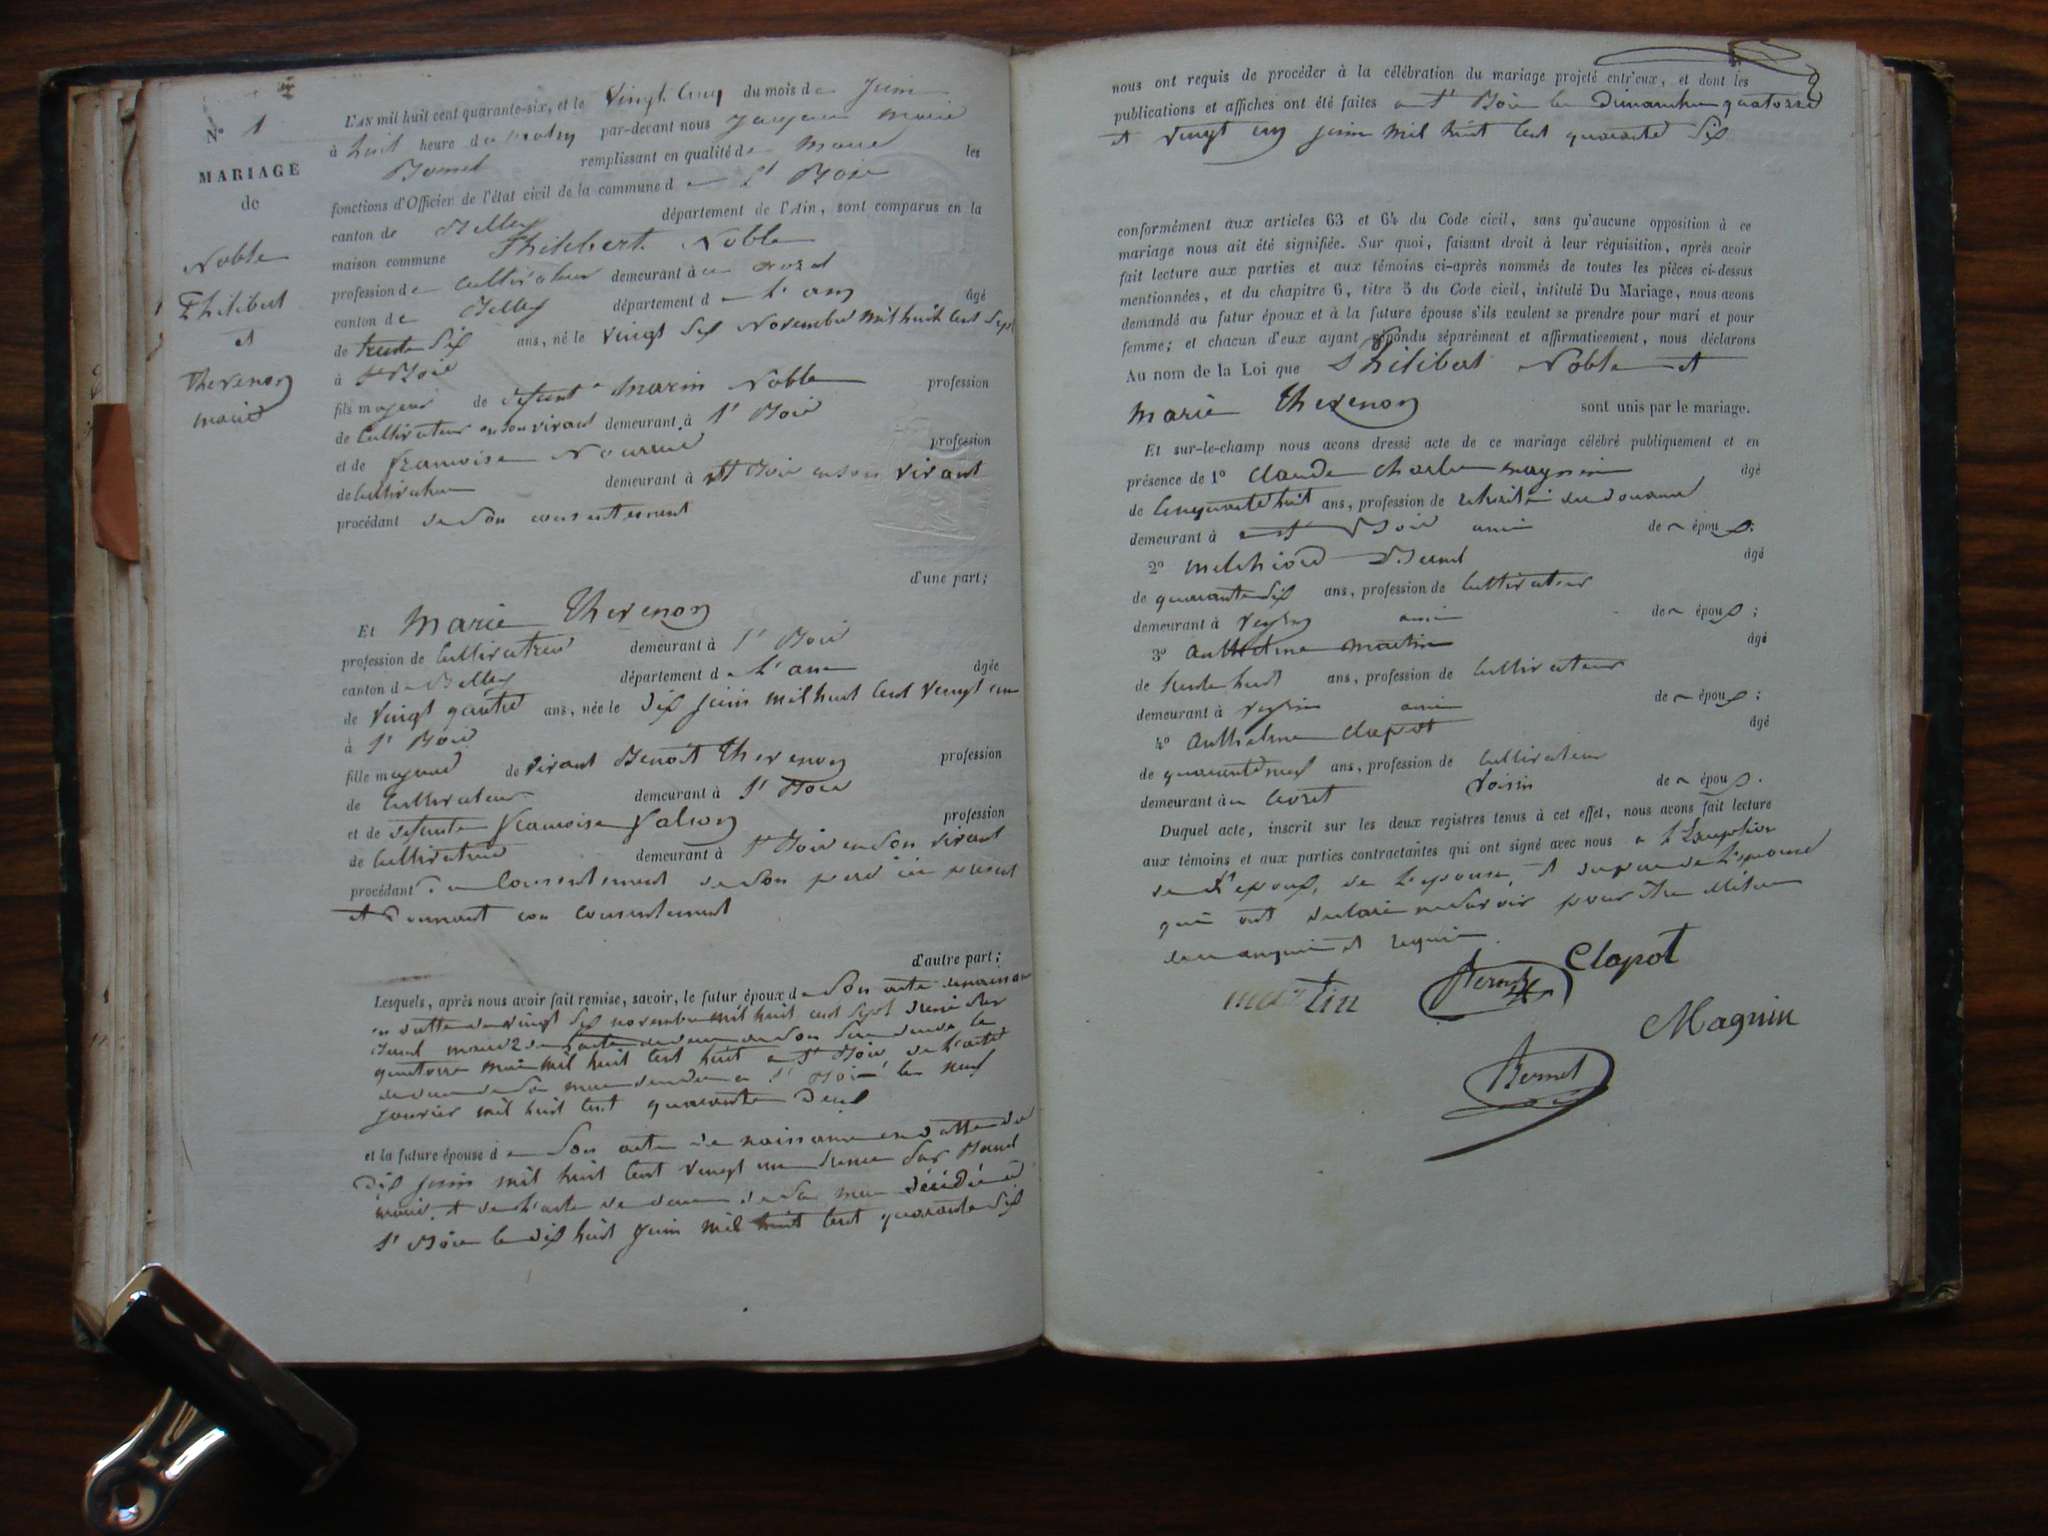 N° 1
MARIAGE
de
Noble
Philibert
et
Thevenon
marie
L'AN mil huit cent quarante-six, et le vingt cinq du mois de Juin
à huit heure du matin par-devant nous Jacques Marie
remplissant en qualité de maire les
fonctions d'Officier de l'état civil de la commune de St Bois
canton de Belley département de l'Ain, sont comparus en la
maison commune Philibert Noble
profession de cultivateur demeurant à
canton de Belley département de l'ain âgé
de trente six ans, né le vingt six Novembre mil huit cent sept
à St Bois
fils majeur de defunt marin Noble profession
de cultivateur en son vivant demeurant à St Bois
et de francoise profession
de cultivatrice demeurant à St Bois en son vivant
procédant de son consentement
d'une part;
Et Marie Thevenon
profession de cultivatrice demeurant à St Bois
canton de Belley département de l'ain âgée
de vingt quatre ans, née le dix juin mil huit cent vingt un
à St Bois
fille majeure de vivant Benoit Thevenon profession
de cultivateur demeurant à St Bois
et de defunte francoise profession
de cultivatrice demeurant à St Bois en son vivant
procédant du consentement de son pere ici present
et donnant son consentement
d'autre part;
Lesquels, après nous avoir fait remise, savoir, le futur époux de son acte de naissance
en datte du vingt six novembre mil huit cent sept
maire de l'acte de deces de son le
quatorze mai mil huit cent huit a St Bois de l'acte
de deces de sa mere a St Bois le neuf
janvier mil huit cent quarante deux
et la future épouse de son acte de naissance en datte du
dix juin mil huit cent vingt un
maire et de l'acte de deces de sa mere décédée a
St Bois le dix huit juin mil huit cent quarante six
nous ont requis de procéder à la célébration du mariage projeté entr'eux, et dont les
publications et affiches ont été faites a St Bois le Dimanche quatorze
et vingt un juin mil huit cent quarante six
conformément aux articles 63 et 64 du Code cicil, sans qu'aucune opposition à ce
mariage nous ait été signifiée. Sur quoi, faisant droit à leur réquisition, après avoir
fait lecture aux parties et aux témoins ci-après nommés de toutes les pièces ci-dessus
mentionnées, et du chapitre 6, titre 5 du Code civil, intitulé Du Mariage, nous avons
demandé au futur époux et à la future épouse s'ils veulent se prendre pour mari et pour
femme; et chacun d'eux ayant répondu séparément et affirmativement, nous déclarons
Au nom de la Loi que Philibert Noble et
Marie Thevenon sont unis par le mariage.
Et sur-le-champ nous avons dressé acte de ce mariage célébré publiquement et en
présence de 1° Claude Charles magnin âgé
de cinquante huit ans, profession de
demeurant à St Bois ami de époux;
2° melchior âgé
de quarante six ans, profession de cultivateur
demeurant à ami de époux;
3° Anthelme martin âgé
de trente huit ans, profession de cultivateur
demeurant à ami de époux;
4° Anthelme clapot âgé
de quarante neuf ans, profession de cultivateur
demeurant à voisin de époux.
Duquel acte, inscrit sur les deux registres tenus à cet effet, nous avons fait lecture
aux témoins et aux parties contractantes qui ont signé avec nous a l'exception
de l'epoux, de l'epouse, et du pere de l'epouse
qui ont declaré ne savoir pour
de ce enquis et requis.
martin Clapot
Magnin
Bernet